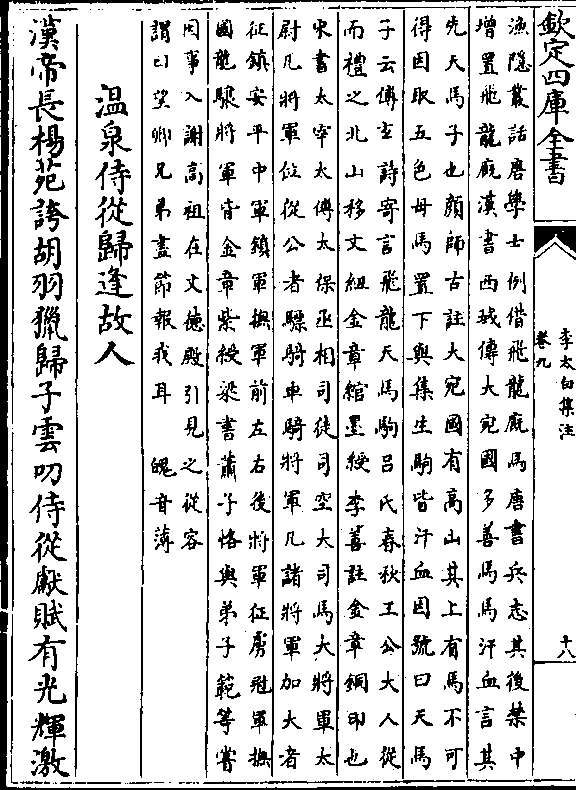 欽定四庫全書
李太白集注
卷九
十八
漁隱叢話唐學士例借飛龍廐馬唐書兵志其後禁中
增置飛龍廐漢書西域傳大宛國多善馬馬汗血言其
先天馬子也顔師古註大宛國有高山其上有馬不可
得因取五色母馬置下與集生駒皆汗血因號曰天馬
子云傅玄詩寄言飛龍天馬駒吕氏春秋王公大人從
而禮之北山移文紐金章綰墨綬李善註金章銅印也
宋書太宰太傅太保丞相司徒司空大司馬大將軍太
尉凡將軍位從公者驃騎車騎將軍凡諸將軍加大者
征鎮安平中軍鎮軍撫軍前左右後將軍征虜冠軍撫
國龍驤將軍皆金章紫綬梁書蕭子恪與弟子範等嘗
因事入謝高祖在文徳殿引見之從容
謂曰望卿兄弟盡節報我耳　䰟音薄
温泉侍從歸逢故人
漢帝長楊苑誇胡羽獵歸子雲叨侍從獻賦有光輝激